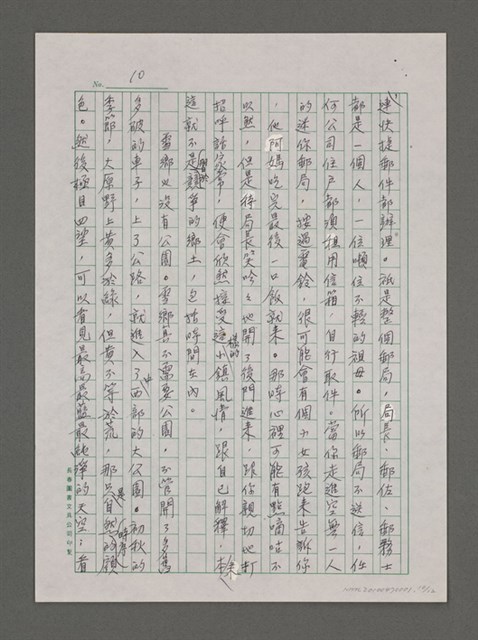 No. 10
連快捷郵件都辦理。祇是整個郵局,局長、郵佐、郵務士
都是一個人,一位順位不輕的祖母。所以郵局不送信,任
何公司住戶都須租用信箱,自行取件。當你走進空無一人
的迷你郵局,按過電鈴,很可能會有個小女孩跑來告訴你
,他阿媽吃完最後一口飯就來。那時心裡可能有點嘀咕不
以然,但是待局長笑吟吟地開了後門進來,跟你親切地打
招呼話家常,便會欣然接受這樣的小鎮風情,跟自己解釋,
這就是雪鄉的鄉土,包括時間在內。
雪鄉也沒有公園。雪鄉長不需要公園,不管開了多舊
多破的車子,上了公路,就進入了中西部的大公園。初秋的
季節,大原野上黃多於綠,但黃不等於荒,那只是自然的顏
色。然後極目四望,可以看見最高最藍最純淨的天空;看
長春圖書文具公司印製